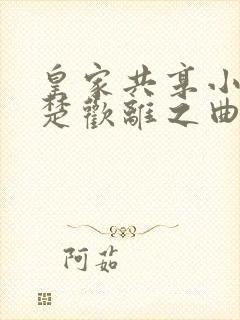 皇家共享小
楚歡離之曲
阿茹